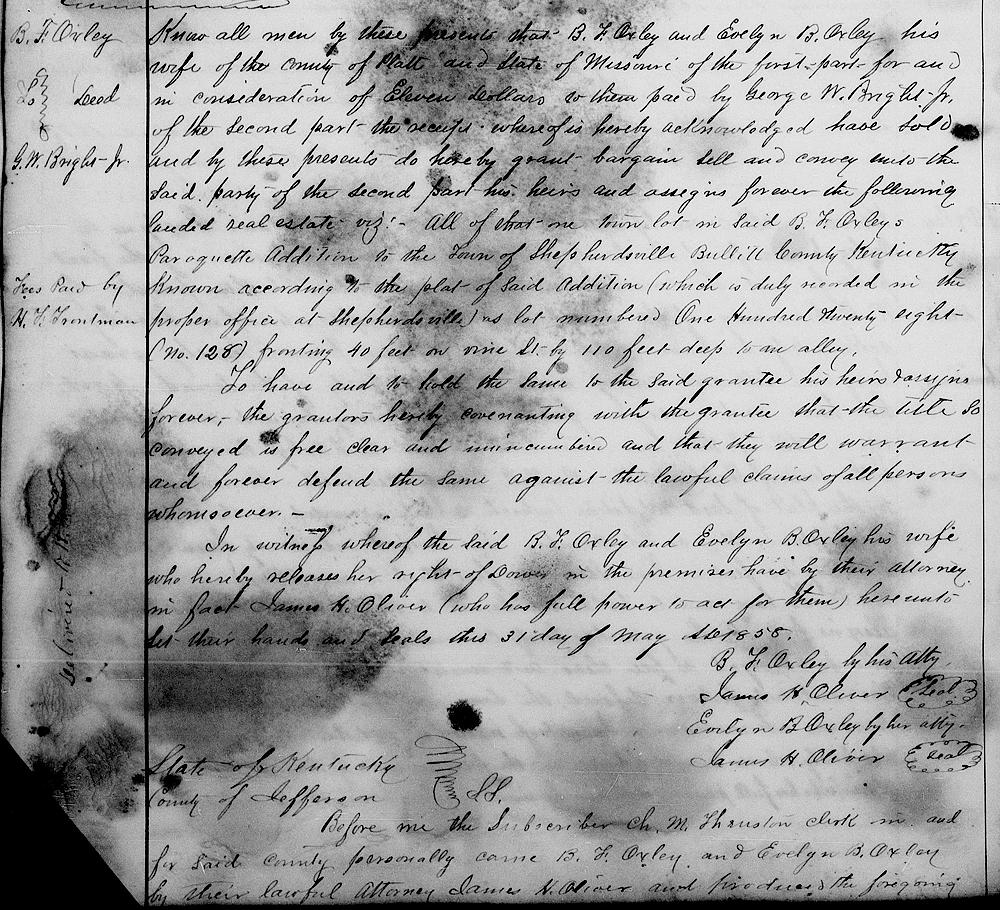 B. F. Oxley
To } Deed
G. W. Bright Jr.
Fees Paid by
H. F. Troutman
Know all men by these presents that B. F. Oxley and Evelyn B. Oxley his
wife of the County of Platt and State of Missouri of the first part for and
in consideration of Eleven Dollars to them paid by George W. Bright Jr.
of the second part the receipt whereof is hereby acknowledged have sold
and by these presents do hereby grant bargain sell and convey unto the
said party of the second part his heirs and assigns forever the following
landed real estate viz:- All of that one town lot in said B. F. Oxleys
Paroquette Addition to the Town of Shepherdsville Bullitt County Kentucky
Known according to the plat of said Addition (which is duly recorded in the
proper office at Shepherdsville) as lot numbered One Hundred & twenty eight
(No. 128) fronting 40 feet on vine St. by 110 feet deep to an alley.
To have and to hold the same to the said grantee his heirs & assigns
forever, the grantors hereby covenanting with the grantee that the title so
conveyed is free clear and unincumbered and that they will warrant
and forever defend the same against the lawful claims of all persons
whomsoever. -
In witness whereof the said B. F. Oxley and Evelyn B. Oxley his wife
who hereby releases her right of Dower in the premises have by their attorney
in fact James H. Oliver (who has full power to act for them) hereunto
set their hands and seals this 31 day of May AD 1858.
B. F. Oxley by his Atty
James H Oliver Seal
Evelyn B Oxley by her atty
James H. Oliver Seal
State of Kentucky
County of Jefferson } SS.
Before me the Subscriber Ch. M. Thruston clerk in and
for said county personally came B. F. Oxley and Evelyn B. Oxley
by their lawful Attorney James H. Oliver and produced the foregoing
Delivered to